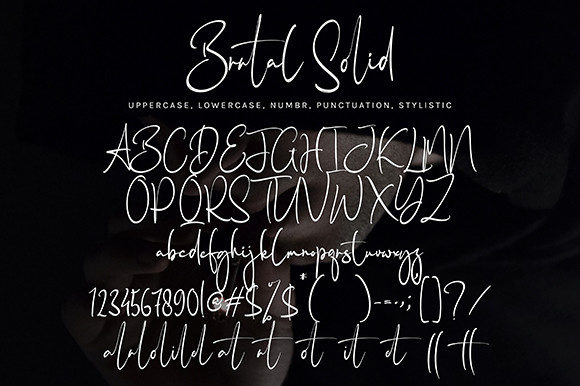 Brutal Solid
UPPERCASE, LOWERCASE, NUMBR, PUNCTUATION, STYLISTIC
ABCDEFGHIJKLMN
OPQRSTUVWXYZ
abcdefghijklmnopqrstuvwxyz
1234567890!@#$%$*()-=.,;[]?/
alalolild at at ot it ot